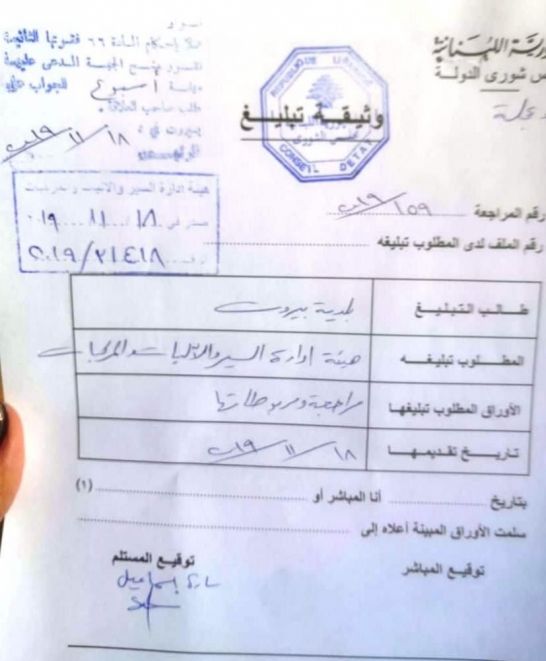 عملا بأحكام المادة ٦٦ فقرتها الثانية
تقرر منح الجهة المدعى عليها
مهلة أسبوع للجواب على
طلب صاحب العلاقة.
بيروت في ١٨/١١/٢٠١٩
الرئيس
الجمهورية اللبنانية
مجلس شورى الدولة
وثيقة تبليغ
REPUBLIQUE LIBANAISE
CONSEIL D'ETAT
هيئة إدارة السير والآليات والمركبات
١٨/١١/٢٠١٩
٢٠١٩/٢١٤١٨
رقم المراجعة ١٥٩/٢٠١٩
رقم الملف لدى المطلوب تبليغه
طالب التبليغ بلدية بيروت
المطلوب تبليغه هيئة إدارة السير والآليات والمركبات
الأوراق المطلوب تبليغها مراجعة ومربوطاتها
تاريخ تقديمها ١٨/١١/٢٠١٩
بتاريخ أنا المباشر أو (١)
سلمت الأوراق المبينة أعلاه إلى
توقيع المباشر توقيع المستلم
سارة إسماعيل